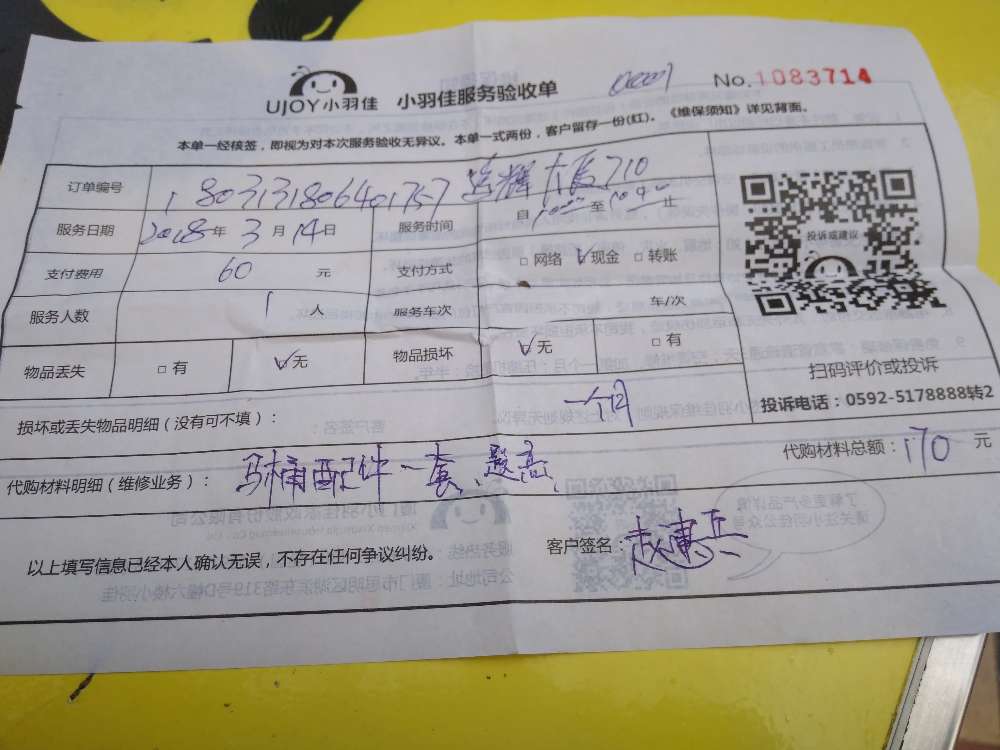 UJOY小羽佳 小羽佳服务验收单 No.1083714
本单一经核签，即视为对本次服务验收无异议。本单一式两份，客户留存一份(红)。《维保须知》详见背面。
订单编号 180313180640175 大厦710
服务日期 2018年3月14日 服务时间 自 至 止
支付费用 60 元 支付方式 □网络 ☑现金 □转账
服务人数 1 人 服务车次 车/次
物品丢失 □有 ☑无 物品损坏 ☑无 □有
投诉或建议
扫码评价或投诉
投诉电话：0592-5178888转2
损坏或丢失物品明细（没有可不填）：
代购材料明细（维修业务）： 马桶配件一套、 代购材料总额：170 元
以上填写信息已经本人确认无误，不存在任何争议纠纷。 客户签名：